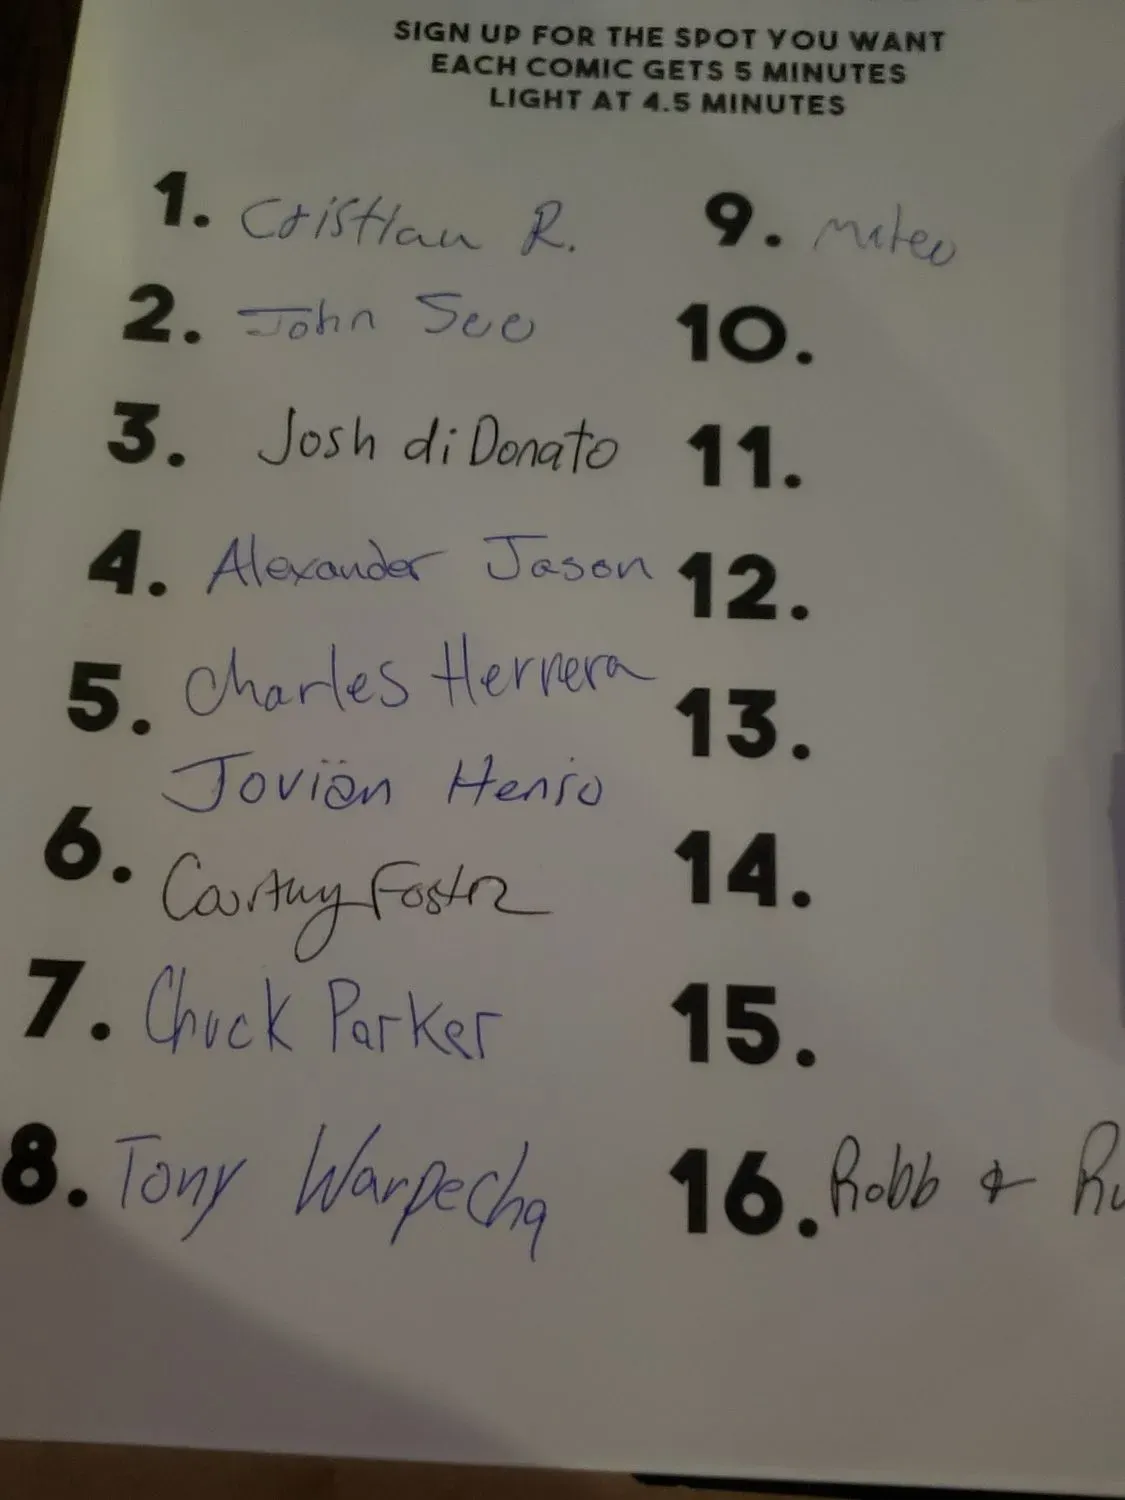 SIGN UP FOR THE SPOT YOU WANT
EACH COMIC GETS 5 MINUTES
LIGHT AT 4.5 MINUTES
1. Cristian R.
2. John See
3. Josh di Donato
4. Alexander Jason
5. Charles Herrera
Joviän Henio
6. Foster
7. Chuck Parker
8. Tony Warpecha
9. mateo
10.
11.
12.
13.
14.
15.
16. Robb &